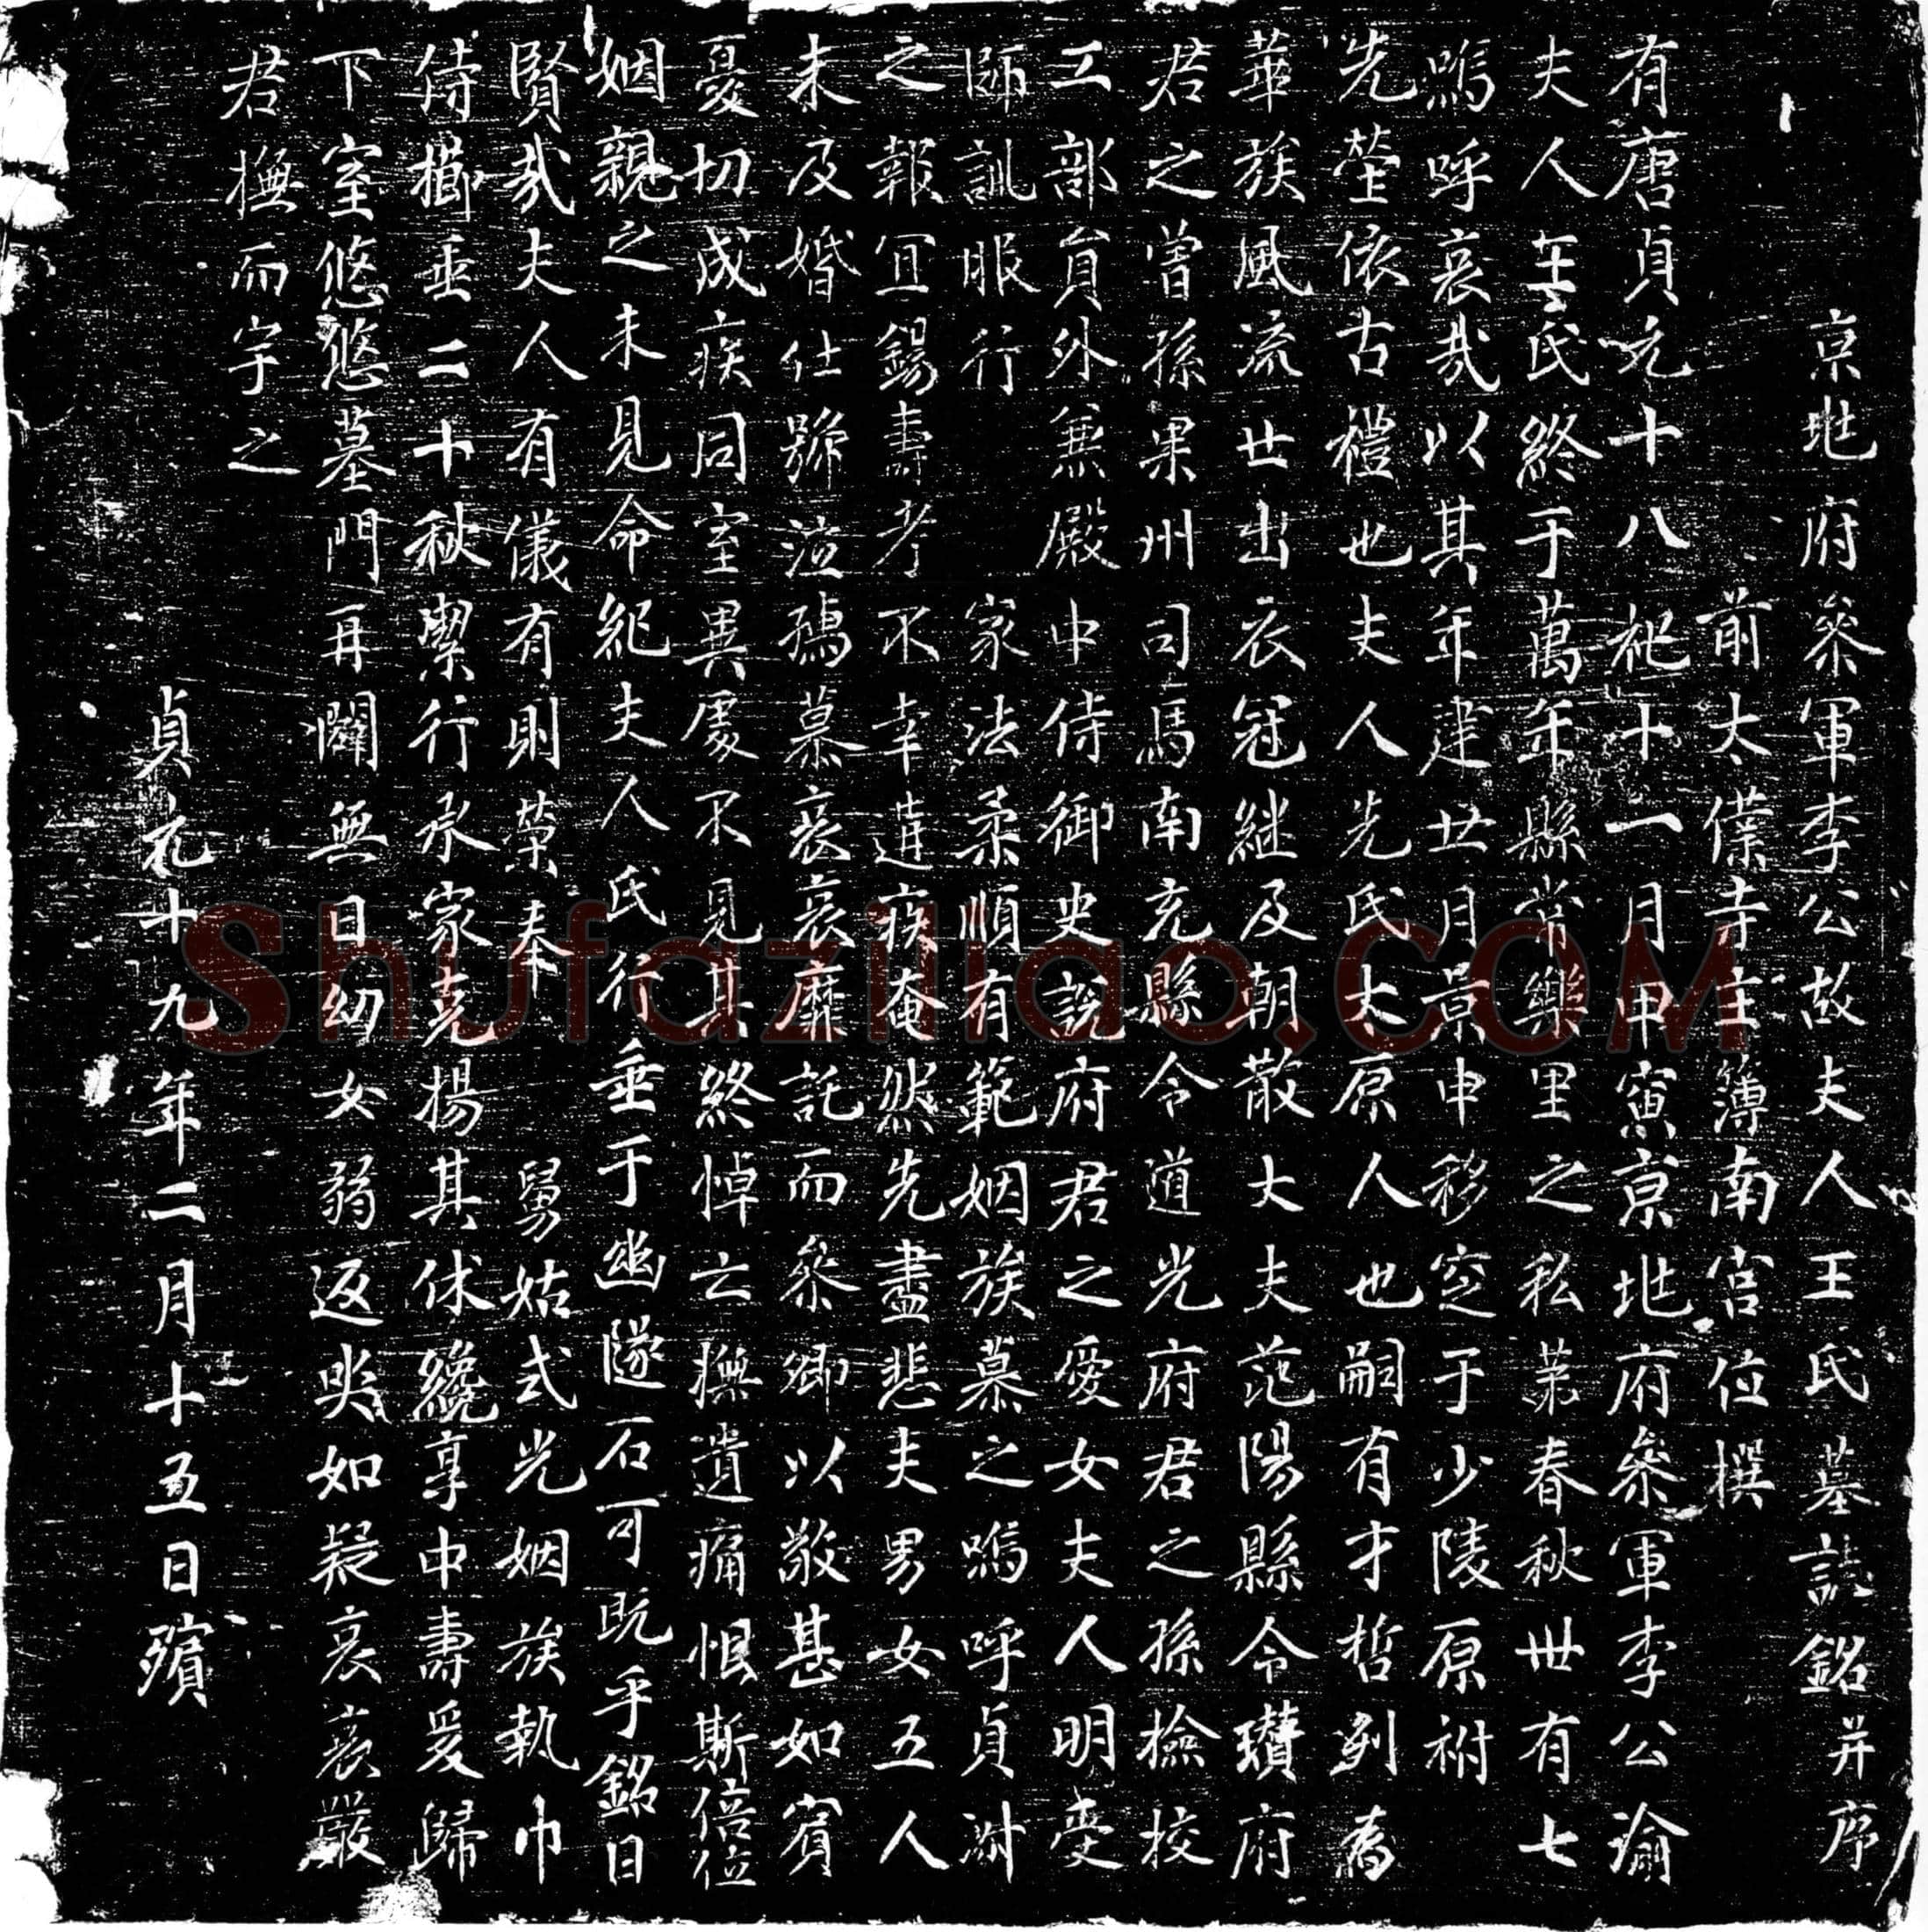 京地府叅軍李公故夫人王氏墓誌銘并序
前太僕寺主簿南宫位撰
有唐貞元十八祀十一月甲寅京地府叅軍李公瑜
夫人王氏終于萬年縣常樂里之私苐春秋世有七
嗚呼哀哉以其年建廿月景申移窆于少陵原祔
先塋依古禮也夫人先氏太原人也嗣有才哲列為
華族風流世出衣冠継及朝散大夫范陽縣令瓚府
君之曾孫果州司馬南充縣令道光府君之孫撿挍
工部員外兼殿中侍御史説府君之愛女夫人明受
師訓服行家法柔順有範姻族慕之嗚呼貞淑
之報宜錫壽考不幸遘疾奄然先盡悲夫男女五人
未及婚仕號泣孺慕哀哀靡託而叅卿以敬甚如賔
憂切成疾同室異處不見其終悼亡撫遺痛恨斯倍位
姻親之末見命紀夫人氏行垂于幽隧石可既乎銘曰
賢哉夫人有儀有則榮奉舅姑式光姻族執巾
侍櫛垂二十秋絜行承家克揚其休纔享中壽爰歸
下室悠悠墓門再闢無日幼女弱返哭如疑哀哀嚴
君撫而字之
貞元十九年二月十五日殯
Shufaziliao.COM